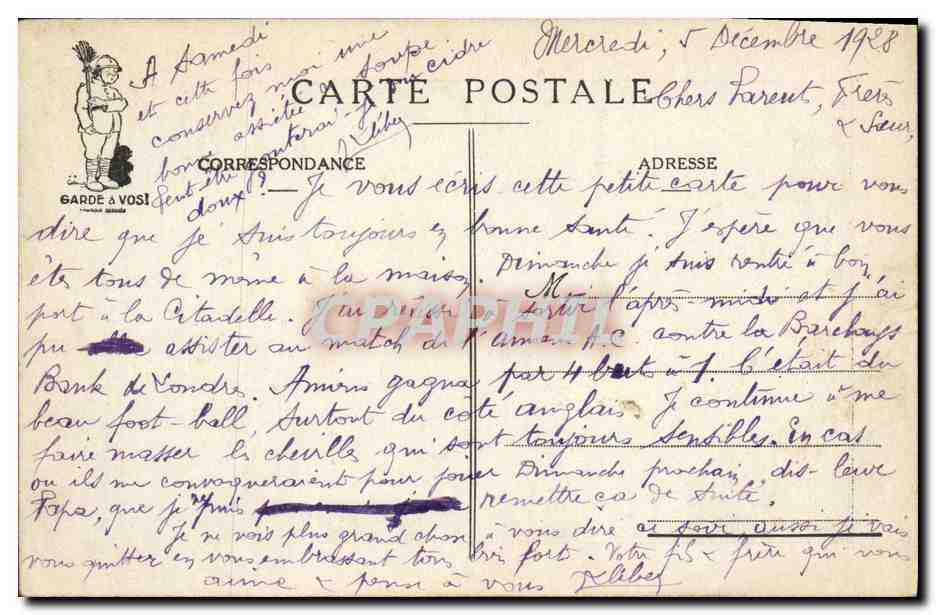 Mercredi, 5 Décembre 1928
CARTE POSTALE
Chers Parents, Frère
& Sœur,
CORRESPONDANCE
ADRESSE
GARDE à VOS!
Je vous écris cette petite carte pour vous
dire que je suis toujours en bonne santé. J'espère que vous
êtes tous de même à la maison. Dimanche je suis rentré à bon
port à la Citadelle. J'ai réussi à sortir l'après-midi et j'ai
pu assister au match de l'Amiens A.C. contre la Barclays
Bank de Londres. Amiens gagna par 4 buts à 1. C'était du
beau foot-ball, surtout du côté anglais. Je continue à me
faire masser les chevilles qui sont toujours sensibles. En cas
où ils me convoqueraient pour jouer Dimanche prochain, dis-leur
Papa, que je puis remettre ça de suite.
Je ne vois plus grand chose à vous dire ce soir aussi je vais
vous quitter en vous embrassant tous bien fort. Votre fils & frère qui vous
aime & pense à vous Kléber
A Samedi
et cette fois
conservez moi une
bonne assiétée de soupe
Peut être goûterai-je du cidre
doux?
Kléber
CPAPHIL